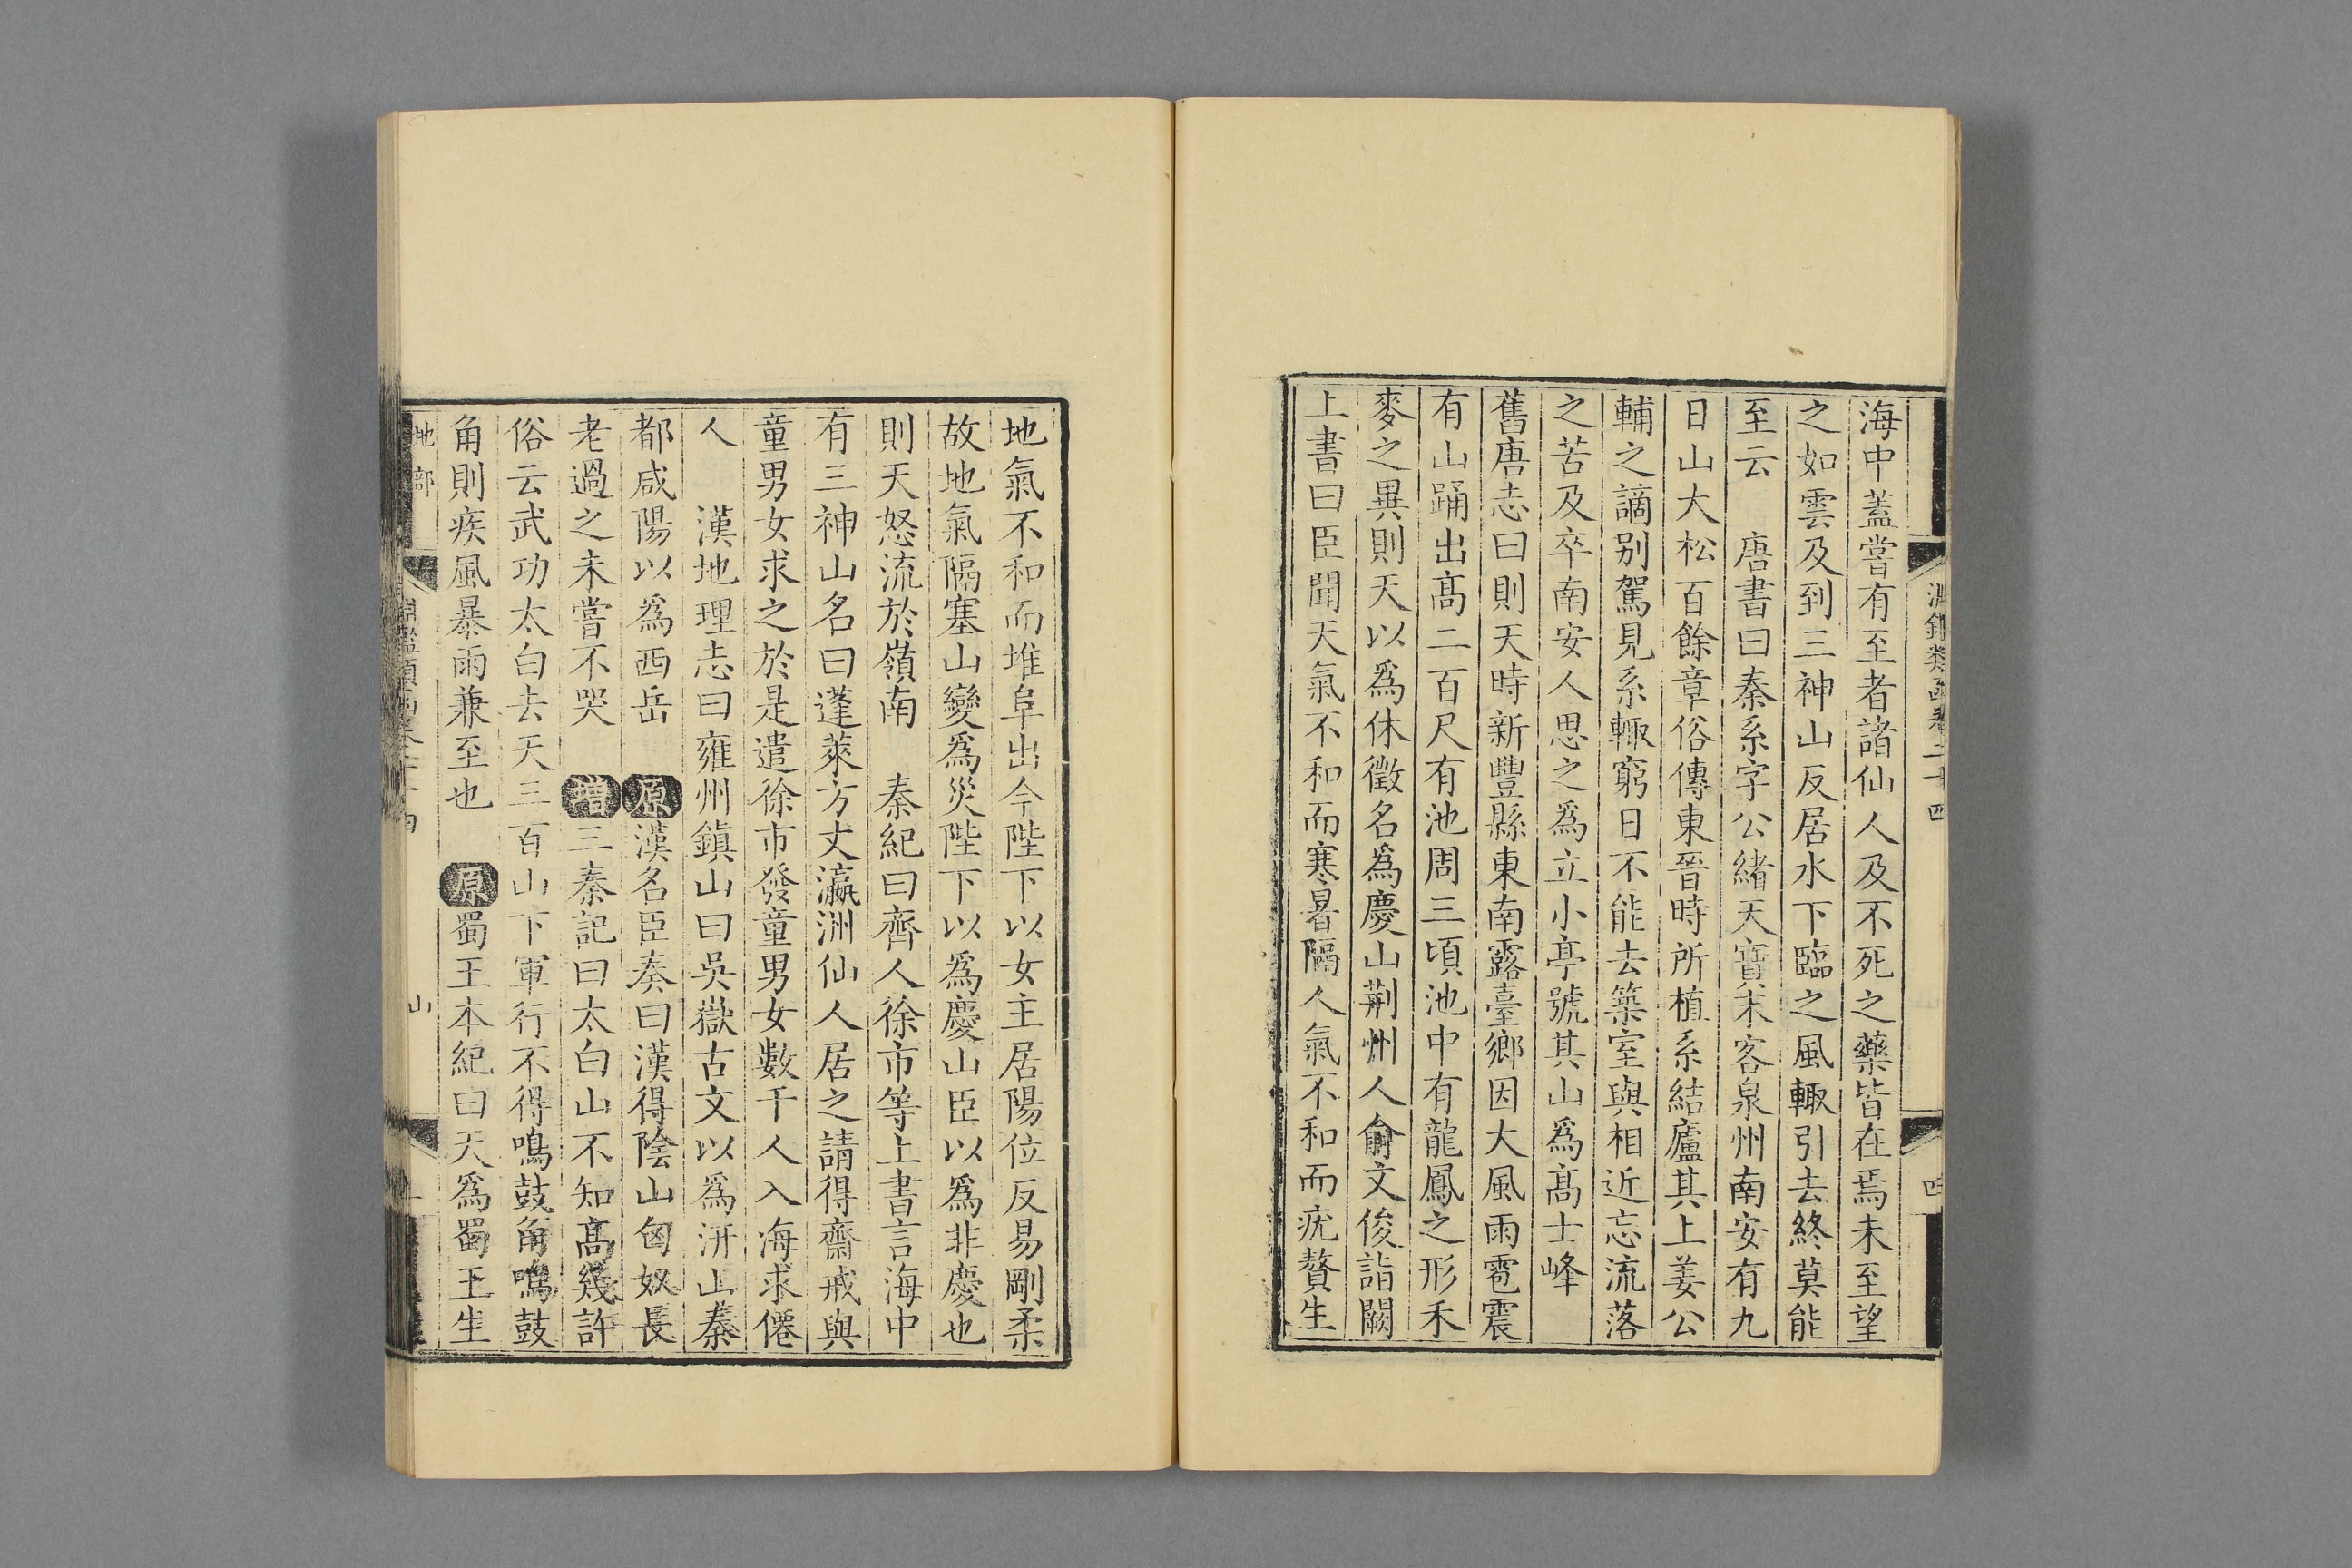 淵鑑類函卷二十四
四
海中蓋嘗有至者諸仙人及不死之藥皆在焉未至望
之如雲及到三神山反居水下臨之風輙引去終莫能
至云　唐書曰秦系字公緖天寶末客泉州南安有九
日山大松百餘章俗傳東晉時所植系結廬其上姜公
輔之謫别駕見系輙窮日不能去築室與相近忘流落
之苦及卒南安人思之爲立小亭號其山爲髙士峰
舊唐志曰則天時新豐縣東南露臺鄉因大風雨雹震
有山踊出髙二百尺有池周三頃池中有龍鳳之形禾
麥之異則天以爲休徵名爲慶山荆州人俞文俊詣闕
上書曰臣聞天氣不和而寒暑隔人氣不和而疣贅生
地氣不和而堆阜出今陛下以女主居陽位反易剛柔
故地氣隔塞山變爲災陛下以爲慶山臣以爲非慶也
則天怒流於嶺南　秦紀曰齊人徐市等上書言海中
有三神山名曰蓬萊方丈瀛洲仙人居之請得齋戒與
童男女求之於是遣徐市發童男女數千人入海求僊
人　漢地理志曰雍州鎮山曰吳嶽古文以爲汧山秦
都咸陽以爲西岳　原漢名臣奏曰漢得陰山匈奴長
老過之未嘗不哭　增三秦記曰太白山不知髙幾許
俗云武功太白去天三百山下軍行不得鳴鼓角鳴鼓
角則疾風暴雨兼至也　原蜀王本紀曰天爲蜀王生
地部
淵鑑類函卷二十四
山